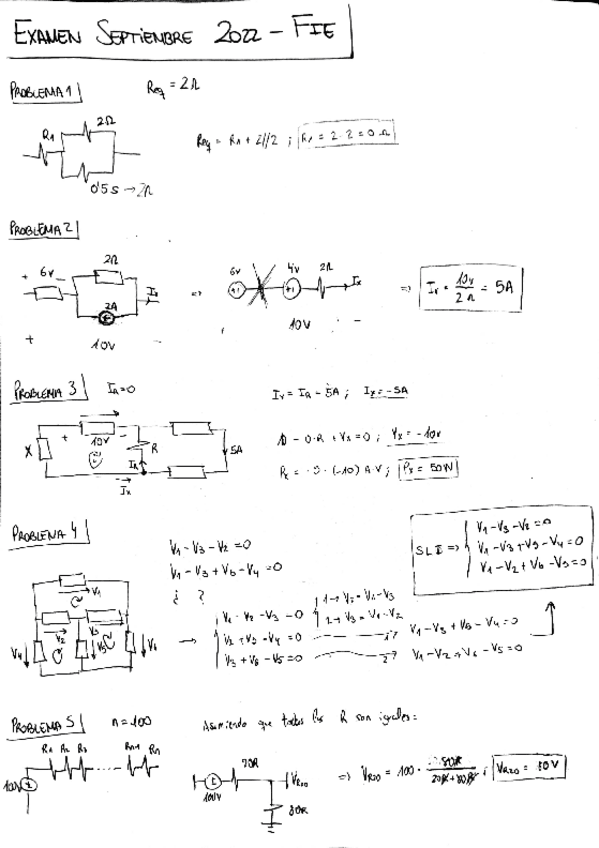 EXAMEN SEPTIEMBRE 2022 - FIE
PROBLEMA 1
Req = 2Ω
R1
2Ω
0'5 S → 2Ω
Req = R1 + 2//2 ; R1 = 2-2 = 0 Ω
PROBLEMA 2
+ 6V -
2Ω
Ix
2A
+ 10V -
⇒
6V
4V
2Ω
Ix
10V -
⇒ Ix = 10V / 2Ω = 5A
PROBLEMA 3
IR=0
X
+ 10V -
R
IR
Ix
5A
Ix = IR - 5A ; Ix = -5A
10 - 0·R + Vx = 0 ; Vx = -10V
Px = -5·(-10) A·V ; Px = 50W
PROBLEMA 4
V1 - V3 - V2 = 0
V1 - V3 + V6 - V4 = 0
¿ ?
V1
V2
V3
V4
V5
V6
→
V1 - V2 - V3 = 0
V2 + V5 - V4 = 0
V3 + V6 - V5 = 0
1→ V2 = V1 - V3
2→ V3 = V1 - V2
V1 - V3 + V5 - V4 = 0
V1 - V2 + V6 - V5 = 0
SLI ⇒
V1 - V3 - V2 = 0
V1 - V3 + V5 - V4 = 0
V1 - V2 + V6 - V5 = 0
PROBLEMA 5
n = 100
Asumiendo que todas las R son iguales:
R1 R2 R3 ...... Rn-1 Rn
100V
20R
100V
80R
⇒